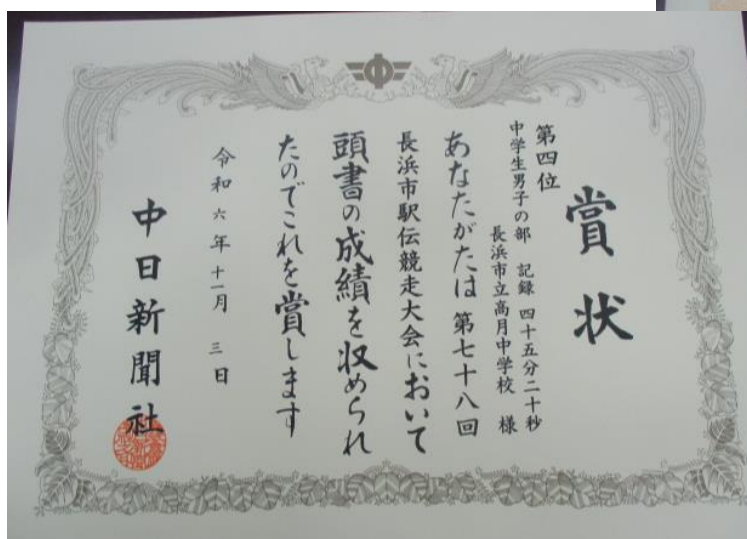 賞状
第四位
中学生男子の部 記録 四十五分二十秒
長浜市立高月中学校 様
あなたがたは第七十八回
長浜市駅伝競走大会において
頭書の成績を収められ
たのでこれを賞します
令和六年十一月三日
中日新聞社